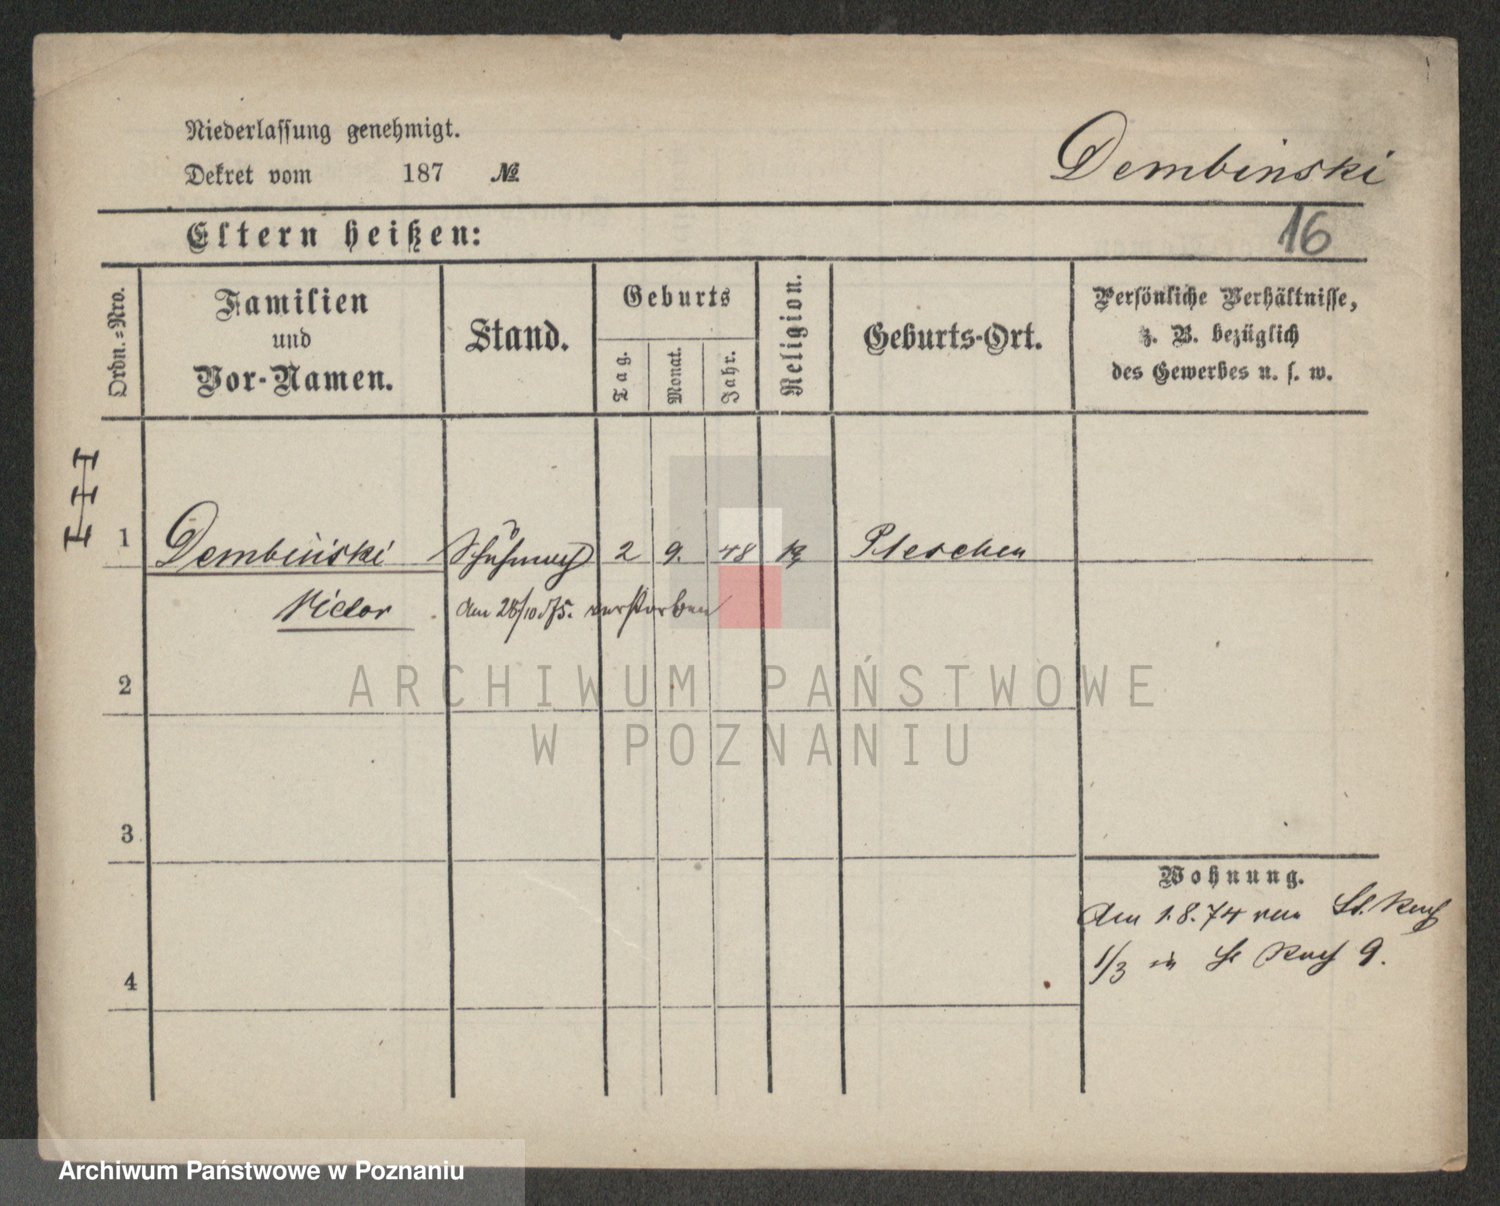 Niederlassung genehmigt.
Dekret vom 187 №
Dembinski
16
Eltern heißen:
Ordn.=Nro.
Familien
und
Vor-Namen.
Stand.
Geburts
Tag.
Monat.
Jahr.
Religion.
Geburts-Ort.
Persönliche Verhältnisse,
z. B. bezüglich
des Gewerbes u. s. w.
1 Dembinski 2 9. 48 Pleschen
Victor am 28/10 75. verstorben
2
ARCHIWUM PAŃSTWOWE
W POZNANIU
3
Wohnung.
Am 1.8.74 von St.
1/3 in 9.
4
Archiwum Państwowe w Poznaniu